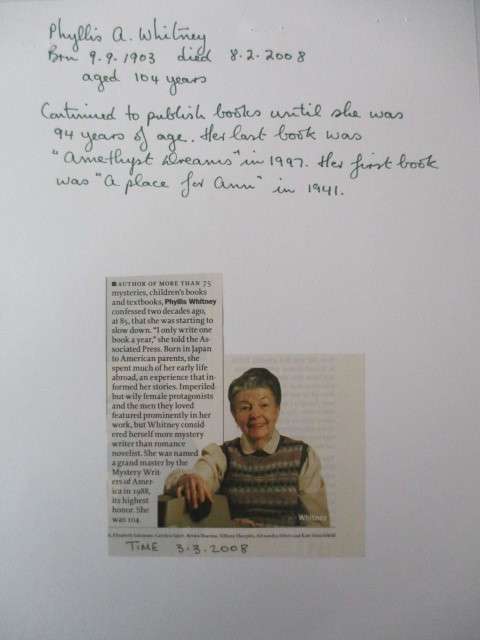 Phyllis A. Whitney
Born 9.9.1903 died 8.2.2008
aged 104 years
Continued to publish books until she was
94 years of age. Her last book was
"Amethyst Dreams" in 1997. Her first book
was "A place for Ann" in 1941.
■ AUTHOR OF MORE THAN 75
mysteries, children's books
and textbooks, Phyllis Whitney
confessed two decades ago,
at 85, that she was starting to
slow down. "I only write one
book a year," she told the As-
sociated Press. Born in Japan
to American parents, she
spent much of her early life
abroad, an experience that in-
formed her stories. Imperiled
but wily female protagonists
and the men they loved
featured prominently in her
work, but Whitney consid
ered herself more mystery
writer than romance
novelist. She was named
a grand master by the
Mystery Writ-
ers of Amer-
ica in 1988,
its highest
honor. She
was 104
Whitney
TIME 3.3.2008